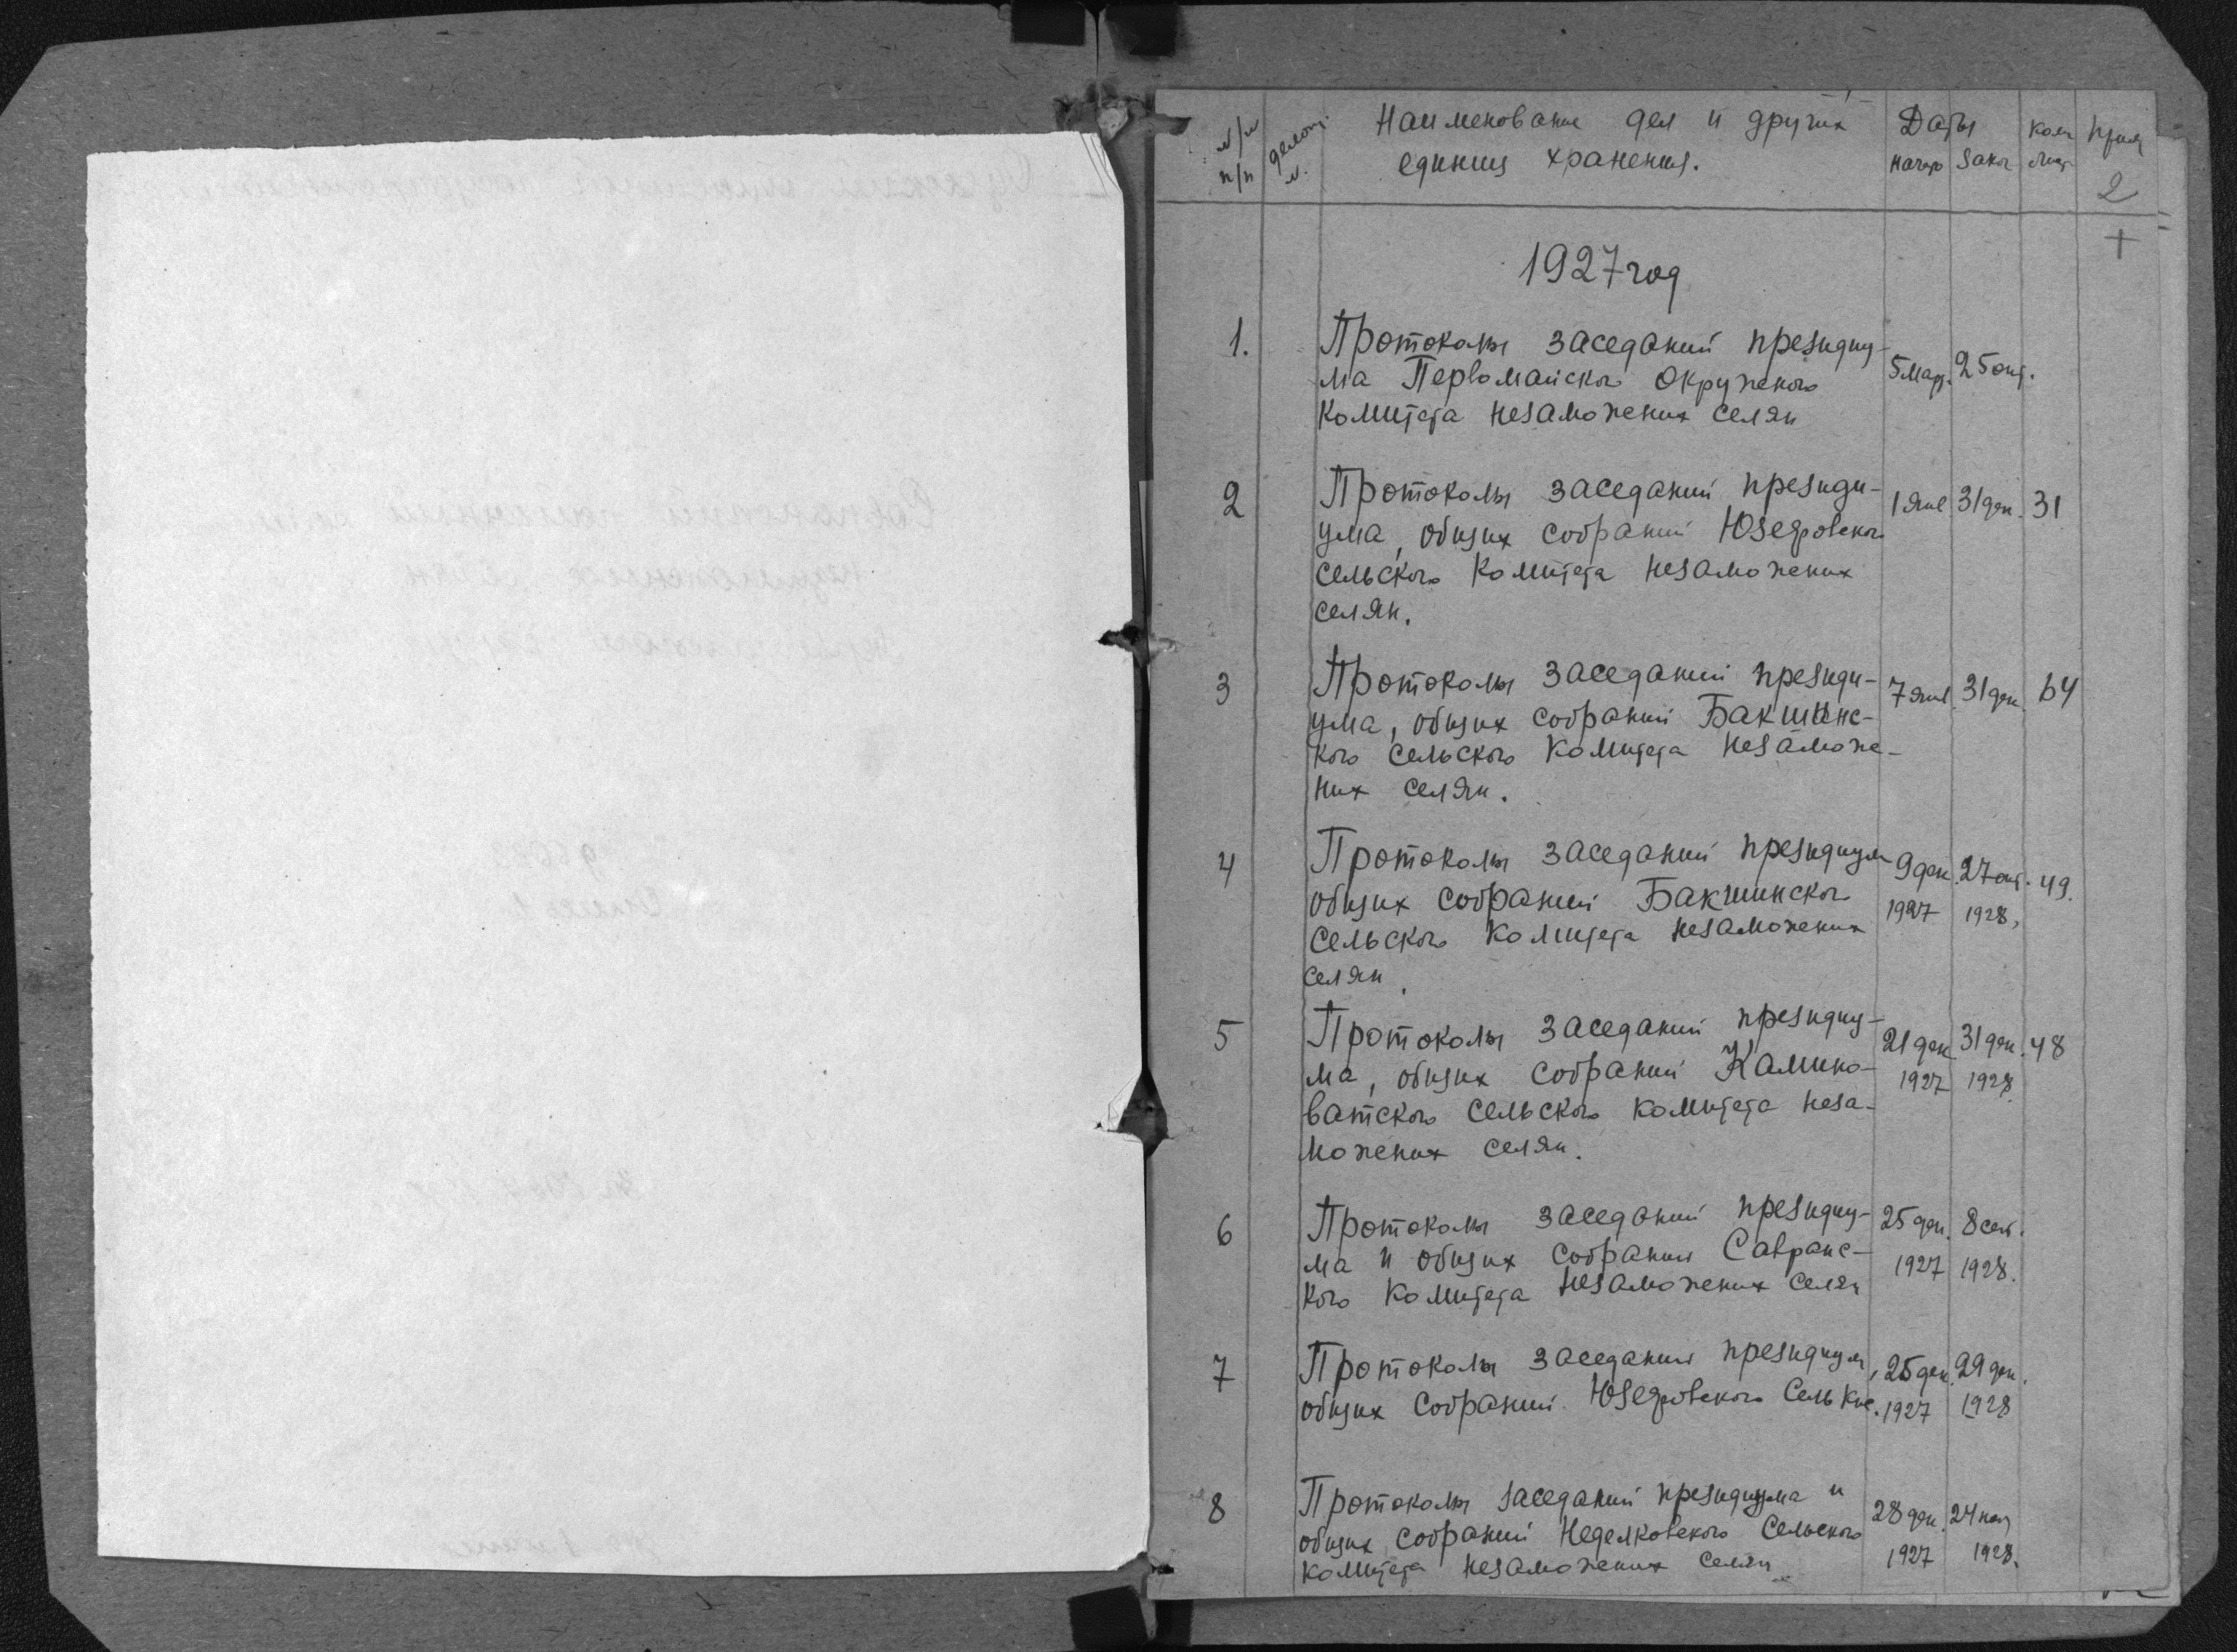 №/№ п/п
Наименование дел и других
единиц хранения.
Даты
начало
закон
кол лист
Прим
2
+
1927 год
1.
Протоколы заседаний президиу-
ма Первомайского Окружного
Комитета незаможних селян
5 март. 25 окт.
2
Протоколы заседаний президи-
ума, общих собраний Юзефовского
сельского Комитета незаможних
селян.
1 янв. 31 дек. 31
3
Протоколы заседаний президи-
ума, общих собраний Бакшинс-
кого сельского Комитета незамож-
них селян.
7 янв. 31 дек. 64
4
Протоколы заседаний президиум
общих собраний Бакшинского
сельского комитета незаможних
селян.
9 дек. 27 окт. 49.
1927 1928,
5
Протоколы заседаний президиу-
ма, общих собраний Камино-
ватского сельского комитета неза-
можних селян.
21 дек. 31 дек. 48
1927 1928.
6
Протоколы заседаний президиу-
ма и общих собраний Савранс-
кого Комитета незаможних селян
25 дек. 8 сент.
1927 1928.
7
Протоколы заседания президиум,
общих собраний Юзефовского Сель Кнс.
25 дек. 29 дек.
1927 1928
8
Протоколы заседаний президиума и
общих собраний Неделковского Сельского
комитета незаможних селян
28 дек. 24 ноя
1927 1928.